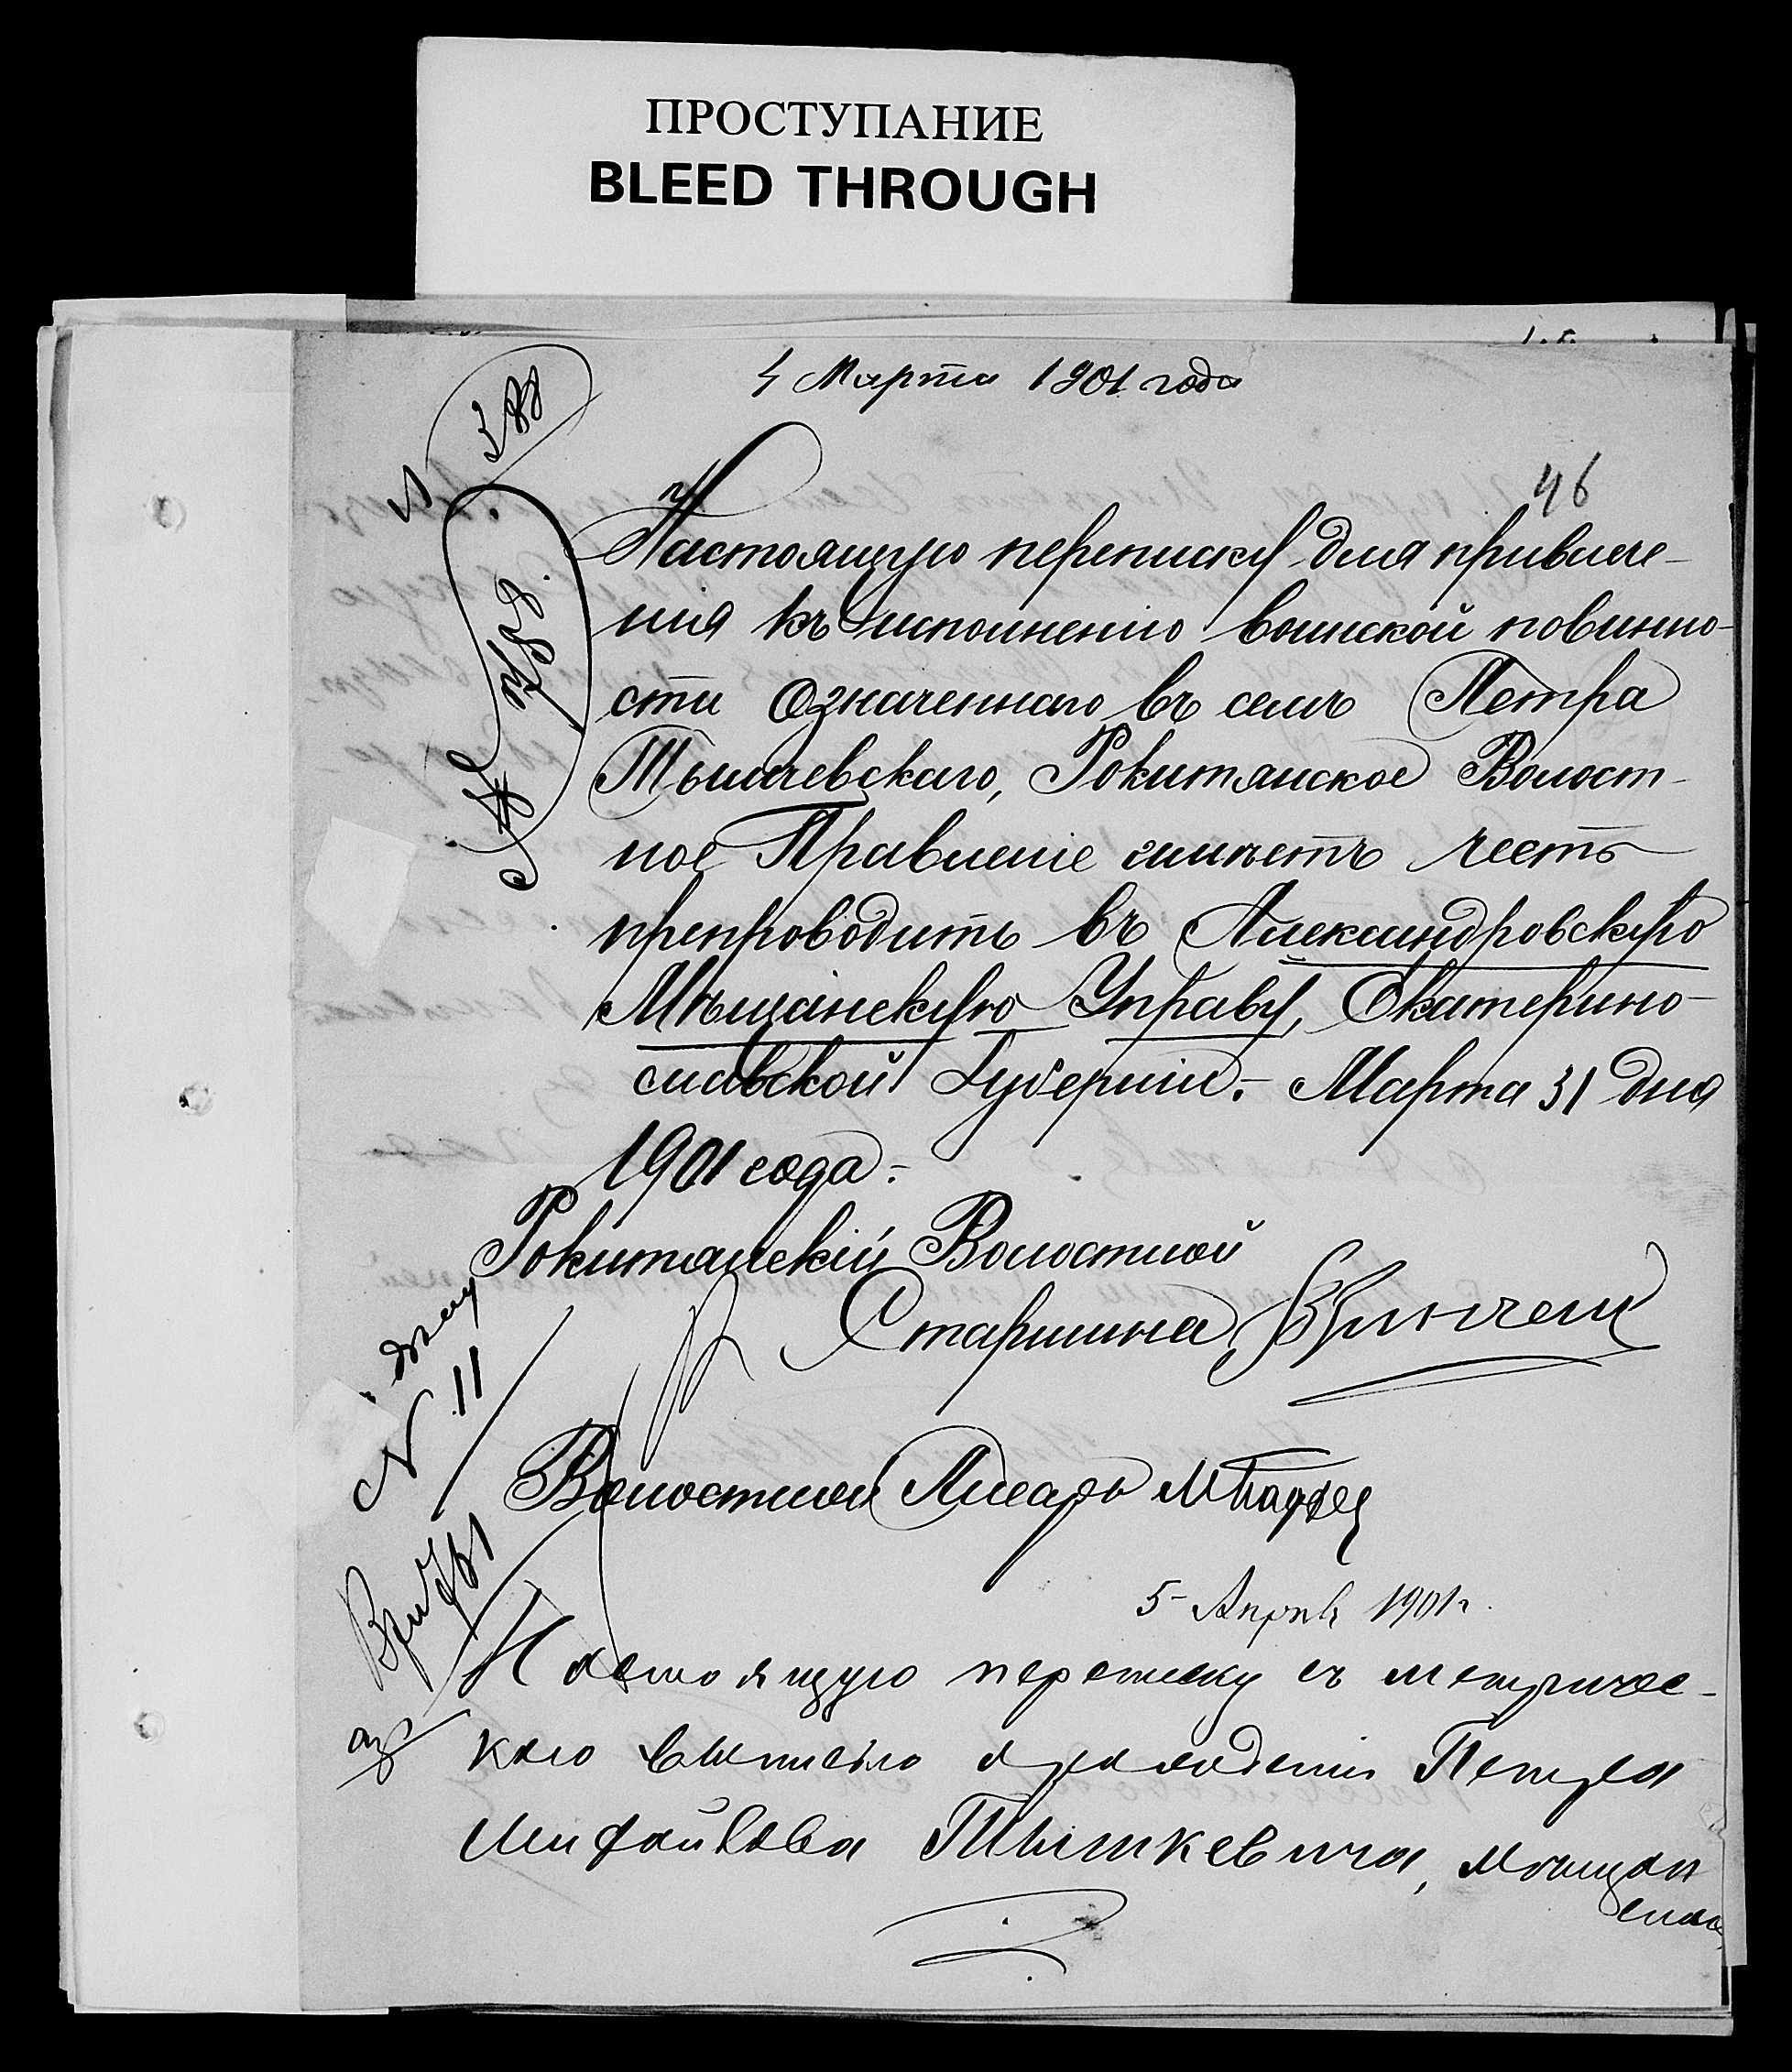 ПРОСТУПАНИЕ
BLEED THROUGH
4 Марта 1901 года
46
Настоящую переписку для привлече-
нія къ исполненію воинской повинно-
сти означеннаго въ семъ Петра
Тышчевскаго, Рокитянское Волост-
ное Правленіе имѣетъ честь
препроводить въ Александровскую
Мѣщанскую Управу, Екатерино-
славской Губерніи. Марта 31 дня
1901 года.
Рокитянскій Волостной
Старшина
Волостной Писарь
N 11
5 Апрѣля 1901 г.
Настоящую переписку съ метричес-
кою выписью о рожденіи Петра
Михайлова Тышкевича, Мѣщан